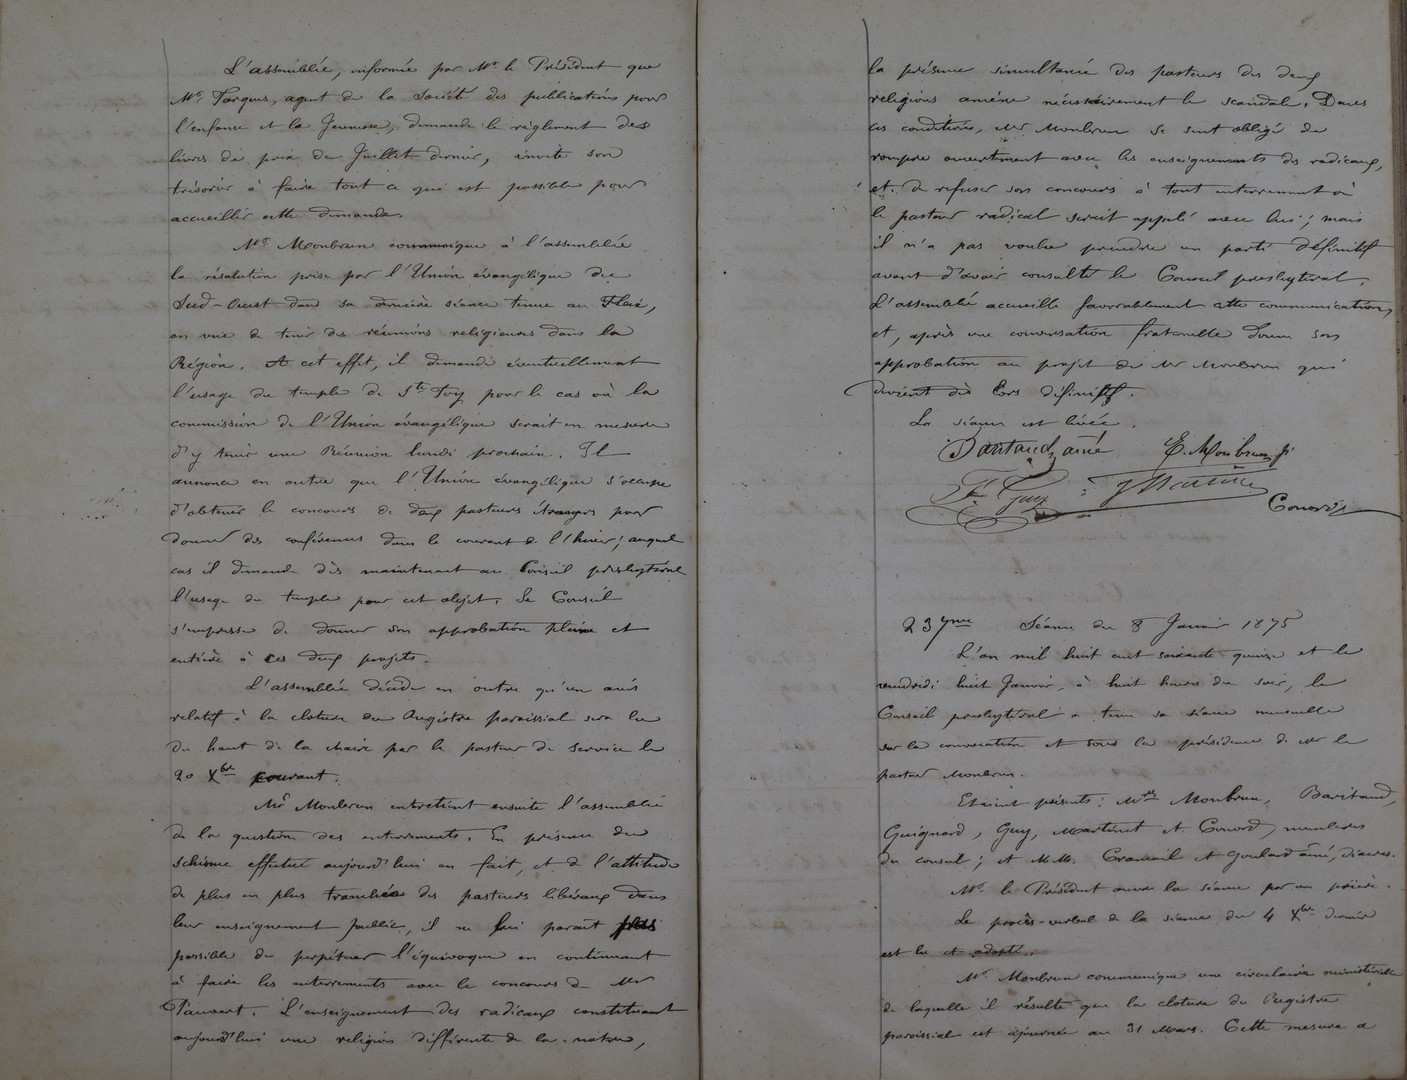 L'assemblée, informée par Mr le Président que
Mr. Farques, agent de la Société des publications pour
l'enfance et la Jeunesse, demande le règlement des
livres de prix de Juillet dernier, invite son
trésorier à faire tout ce qui est possible pour
accueillir cette demande.
Mr. Monbrun communique à l'assemblée
la résolution prise par l'Union évangélique du
Sud-Ouest dans sa dernière séance tenue au Fleix,
en vue de tenir des réunions religieuses dans la
Région. A cet effet, il demande éventuellement
l'usage du temple de Ste Foy pour le cas où la
commission de l'Union évangélique serait en mesure
d'y tenir une Réunion lundi prochain. Il
annonce en outre que l'Union évangélique s'occupe
d'obtenir le concours de deux pasteurs étrangers pour
donner des conférences dans le courant de l'hiver; auquel
cas il demande dès maintenant au Conseil presbytéral
l'usage du temple pour cet objet. Le Conseil
s'empresse de donner son approbation pleine et
entière à ces deux projets.
L'assemblée décide en outre qu'un avis
relatif à la cloture du Registre paroissial sera lu
du haut de la chaire par le pasteur de service le
20 Xbre courant.
Mr Monbrun entretient ensuite l'assemblée
de la question des enterrements. En présence du
schisme effectué aujourd'hui en fait, et de l'attitude
de plus en plus tranchée des pasteurs libéraux dans
leur enseignement public, il ne lui parait pas
possible de perpétuer l'équivoque en continuant
à faire les enterrements avec le concours de Mr
L'enseignement des radicaux constituant
aujourd'hui une religion différente de la notre,
la présence simultanée des pasteurs des deux
religions amène nécessairement le scandale. Dans
ces conditions, Mr Monbrun se sent obligé de
rompre ouvertement avec les enseignements des radicaux,
et de refuser son concours à tout enterrement où
le pasteur radical serait appelé avec lui; mais
il n'a pas voulu prendre un parti définitif
avant d'avoir consulté le Conseil presbytéral.
L'assemblée accueille favorablement cette communication,
et, après une conversation fraternelle donne son
approbation au projet de Mr Monbrun qui
devient dès lors définitif.
La séance est levée.
Baritaud, ainé E. Monbrun p.
Fs Guy J Martinet
Conord
237me Séance du 8 Janvier 1875
L'an mil huit cent soixante quinze et le
vendredi huit Janvier, à huit heures du soir, le
Conseil presbytéral a tenu sa séance mensuelle
sur la convocation et sous la présidence de Mr le
pasteur Monbrun.
Etaient présents: Mrs Monbrun, Baritaud,
Guignard, Guy, Martinet et Conord, membres
du conseil; et M.M. Cramail et Goulard ainé, diacres.
Mr. le Président ouvre la séance par un prière.
Le procès-verbal de la séance du 4 Xbre dernier
est lu et adopté.
Mr. Monbrun communique une circulaire ministérielle
de laquelle il résulte que la cloture du Registre
paroissial est ajournée au 31 Mars. Cette mesure a